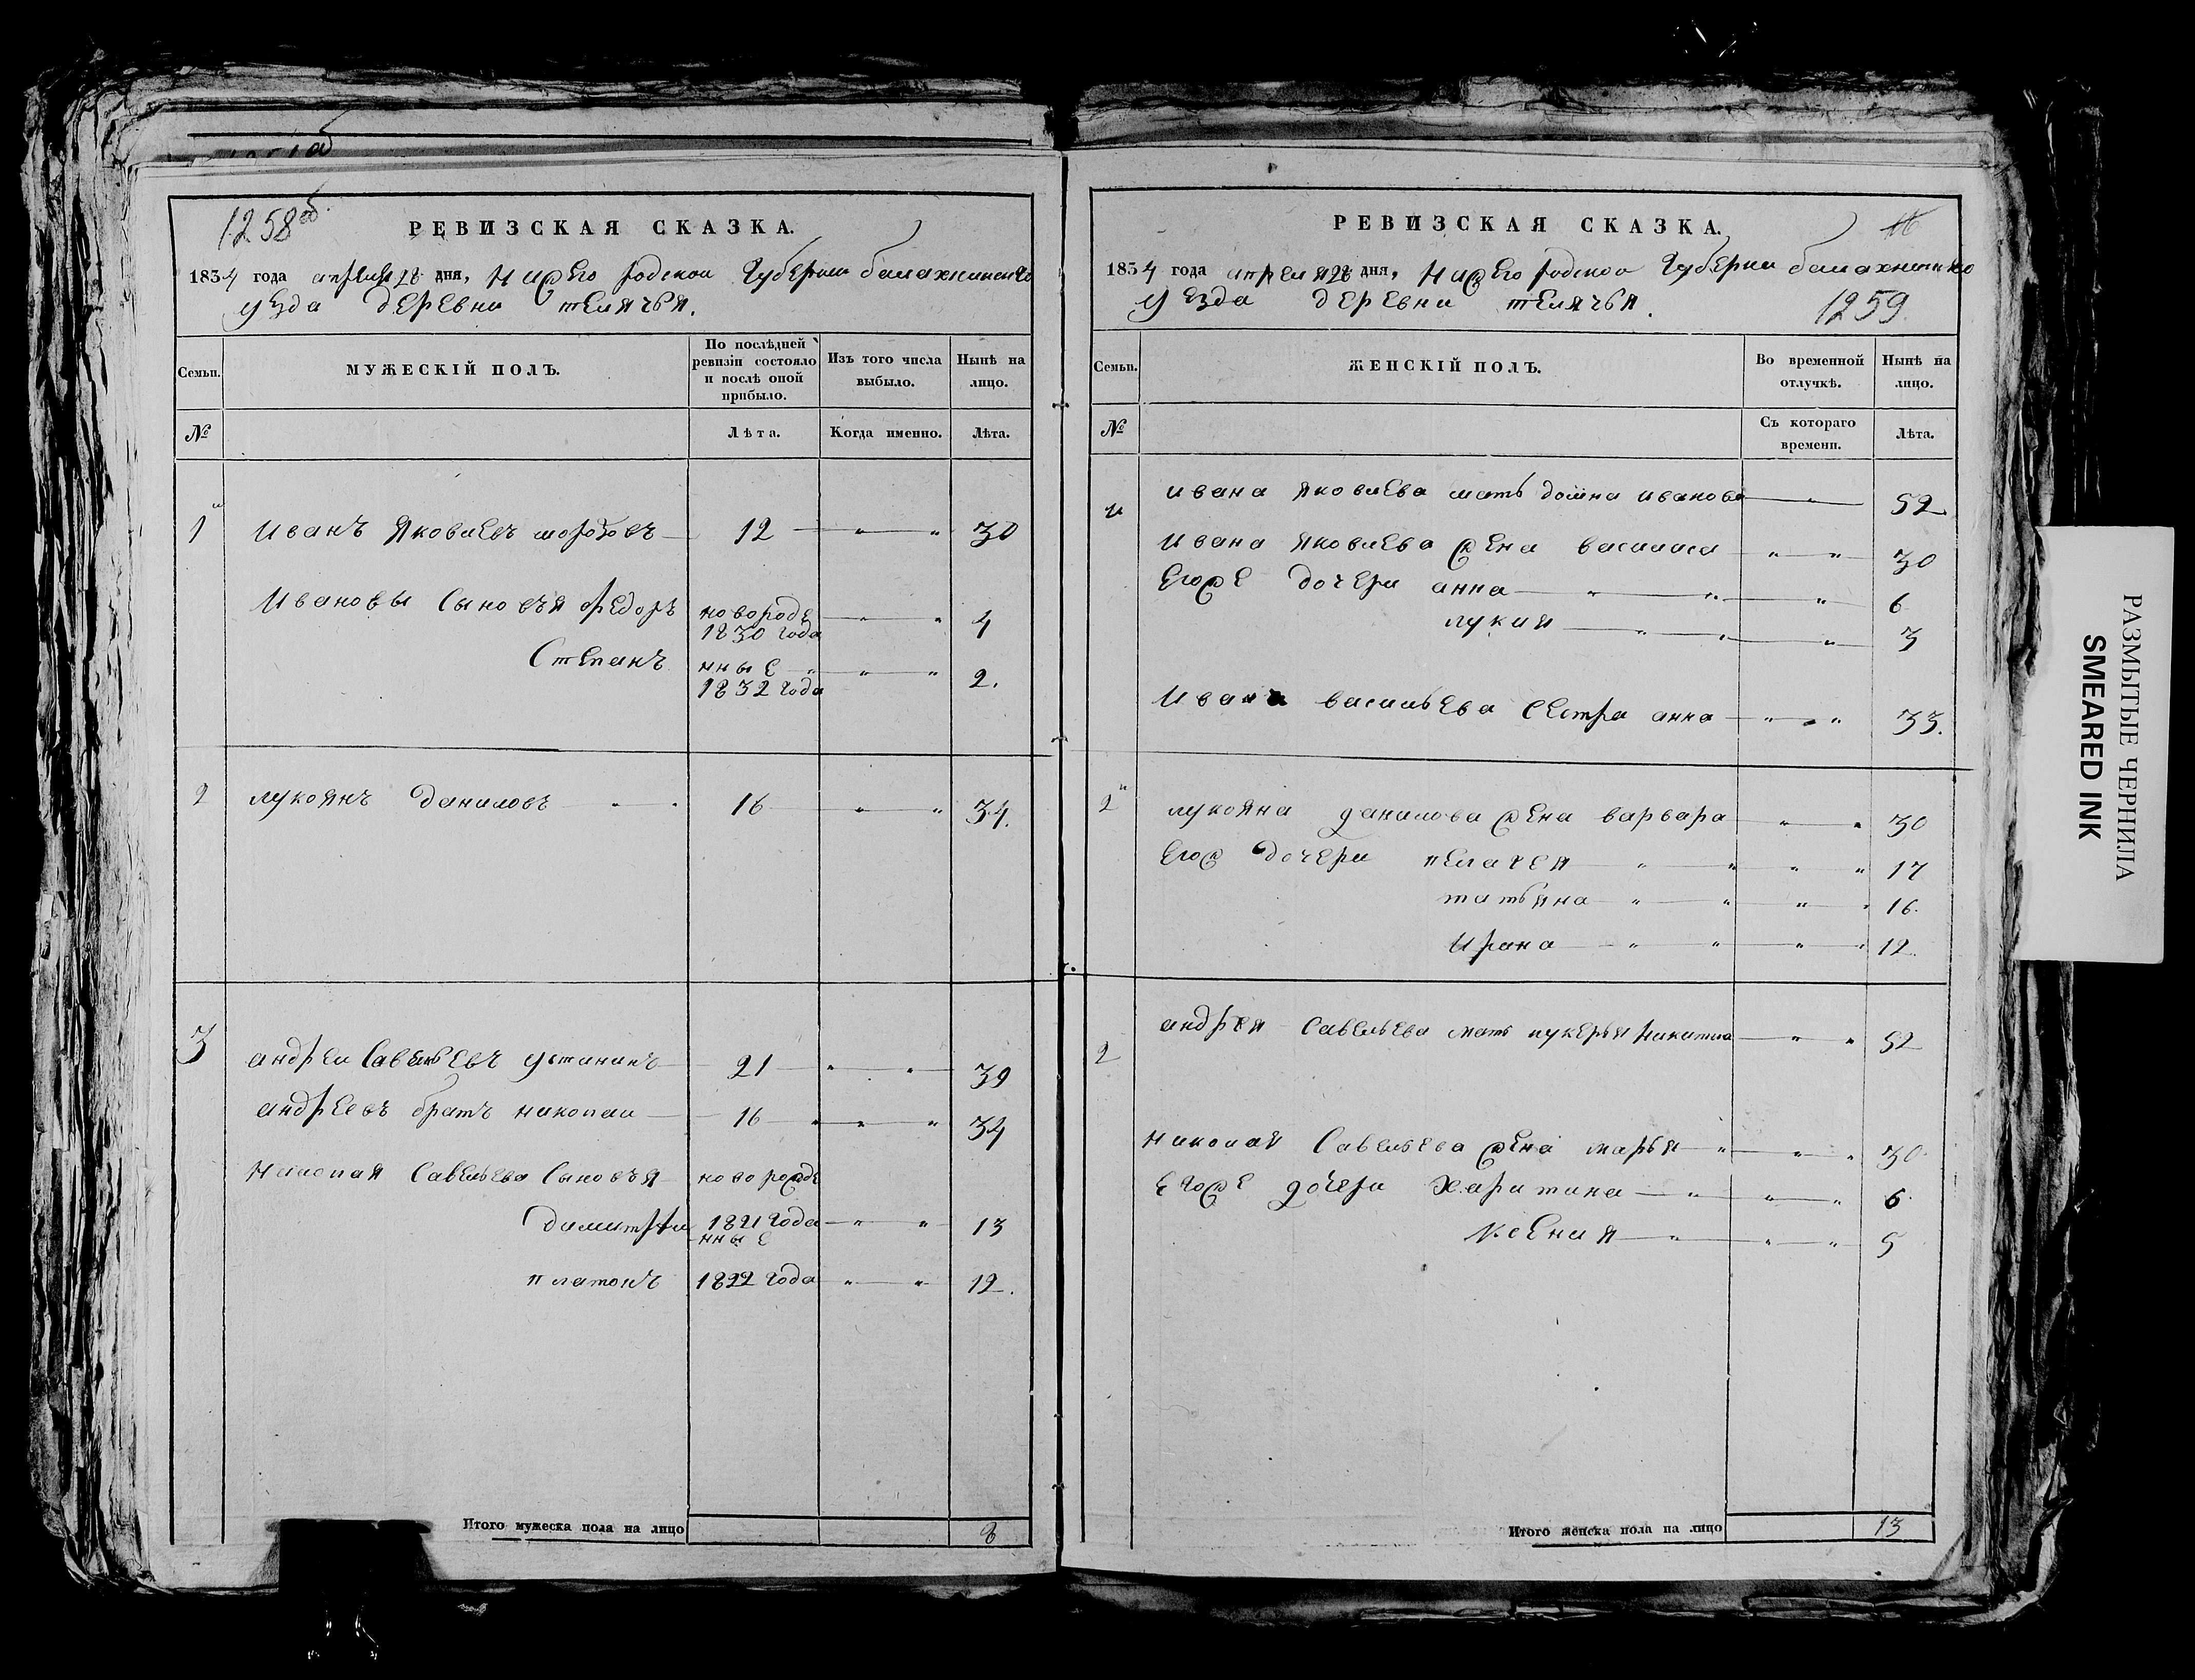 1258об.
РЕВИЗСКАЯ СКАЗКА.
1834 года апреля 28 дня, Нижегородской Губернии балахнинского
уезда деревни телячья.
Семьи.
МУЖЕСКІЙ ПОЛЪ.
По послѣдней ревизіи состояло и послѣ оной прибыло.
Изъ того числа выбыло.
Нынѣ на лицо.
№
Лѣта.
Когда именно.
Лѣта.
1 Иванъ Яковлевъ морозовъ 12 " " 30
Ивановы Сыновья федоръ новорожде 1830 года " " 4
Степанъ нные 1832 года " " 2.
2 лукоянъ даниловъ " " 16 " " 34.
3 андреи Савельевъ устининъ 21 " " 39
андреевъ братъ николаи 16 " " 34
Николая Савельева Сыновья новорожде
димитрии 1821 года нные " " 13
платонъ 1822 года " " 12.
Итого мужеска пола на лицо 8
РЕВИЗСКАЯ СКАЗКА.
1834 года апреля 28 дня, Нижегородской Губернии
уезда деревни телячья. 1259.
Семьи.
ЖЕНСКІЙ ПОЛЪ.
Во временной отлучкѣ.
Нынѣ на лицо.
№
Съ котораго времени.
Лѣта.
ивана яковлева мать домна иванова " 52.
Ивана яковлева жена василиса " " 30
Егоже дочери анна " " " 6
лукия " " " 3
Ивана васильева сестра анна " " 33.
2 лукояна данилова жена варвара " " 30
Егож дочери пелагея " " " " 17
татьяна " " " " 16.
Ирина " " " " 12.
2 андрея Савельева мать лукерья Никитина " " 52
николая Савельева жена марья " " " 30.
Егоже дочери Харитина " " " 6
Ксения " " " 5
Итого женска пола на лицо 13
РАЗМЫТЫЕ ЧЕРНИЛА
SMEARED INK